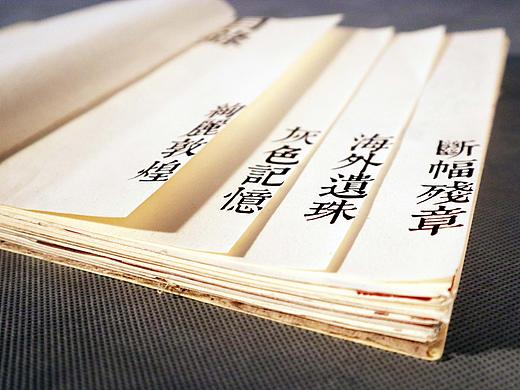 斷幅殘章
海外遺珠
灰色記憶
絢麗敦煌
目錄